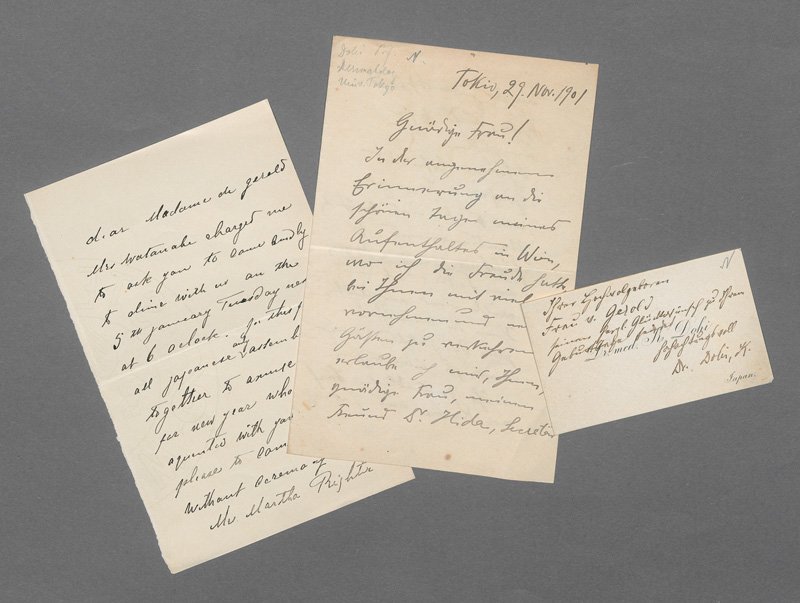 dear Madame de Gerold
Mrs Watanabe charged me
to ask you to come kindly
to dinne with us on the
5th January Tuesday ne
at 6 oclock. In this
all Japanese assemb
together to amuse
for new year who
aquented with you
please to com
without ceremo
Mrs Martha Righter
N.
Tokio, 29. Nov. 1901
Gnädige Frau!
In der angenehmen
Erinnerung an die
schönen Tage meines
Aufenthaltes in Wien,
wo ich die Freude hatte
bei Ihnen mit viel
vornehmen und
Gästen zu verkehren
erlaube ich mir, Ihnen,
gnädige Frau, meinen
Freund Dr. Hida, Secretär
N
Ihrer Hochwolgeboren
Frau v. Gerold
seinen herzl. Glückwunsch zu Ihrem
Geburtstage
Dr. med. Dohi
Hochachtungsvoll
Dr. Dohi, K.
Japan.